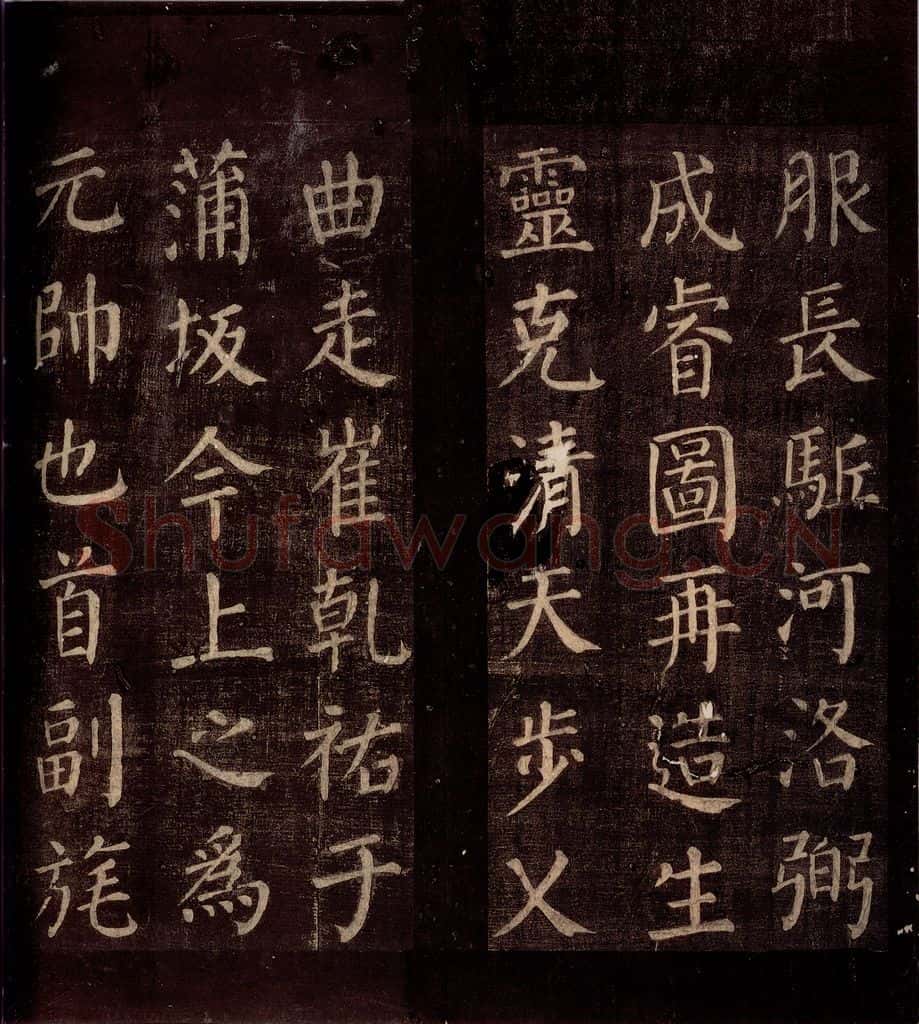 服長駈河洛弼
成睿圖再造生
靈克清天步乂
曲走崔乾祐于
蒲坂今上之爲
元帥也首副旄
Shufawang.CN